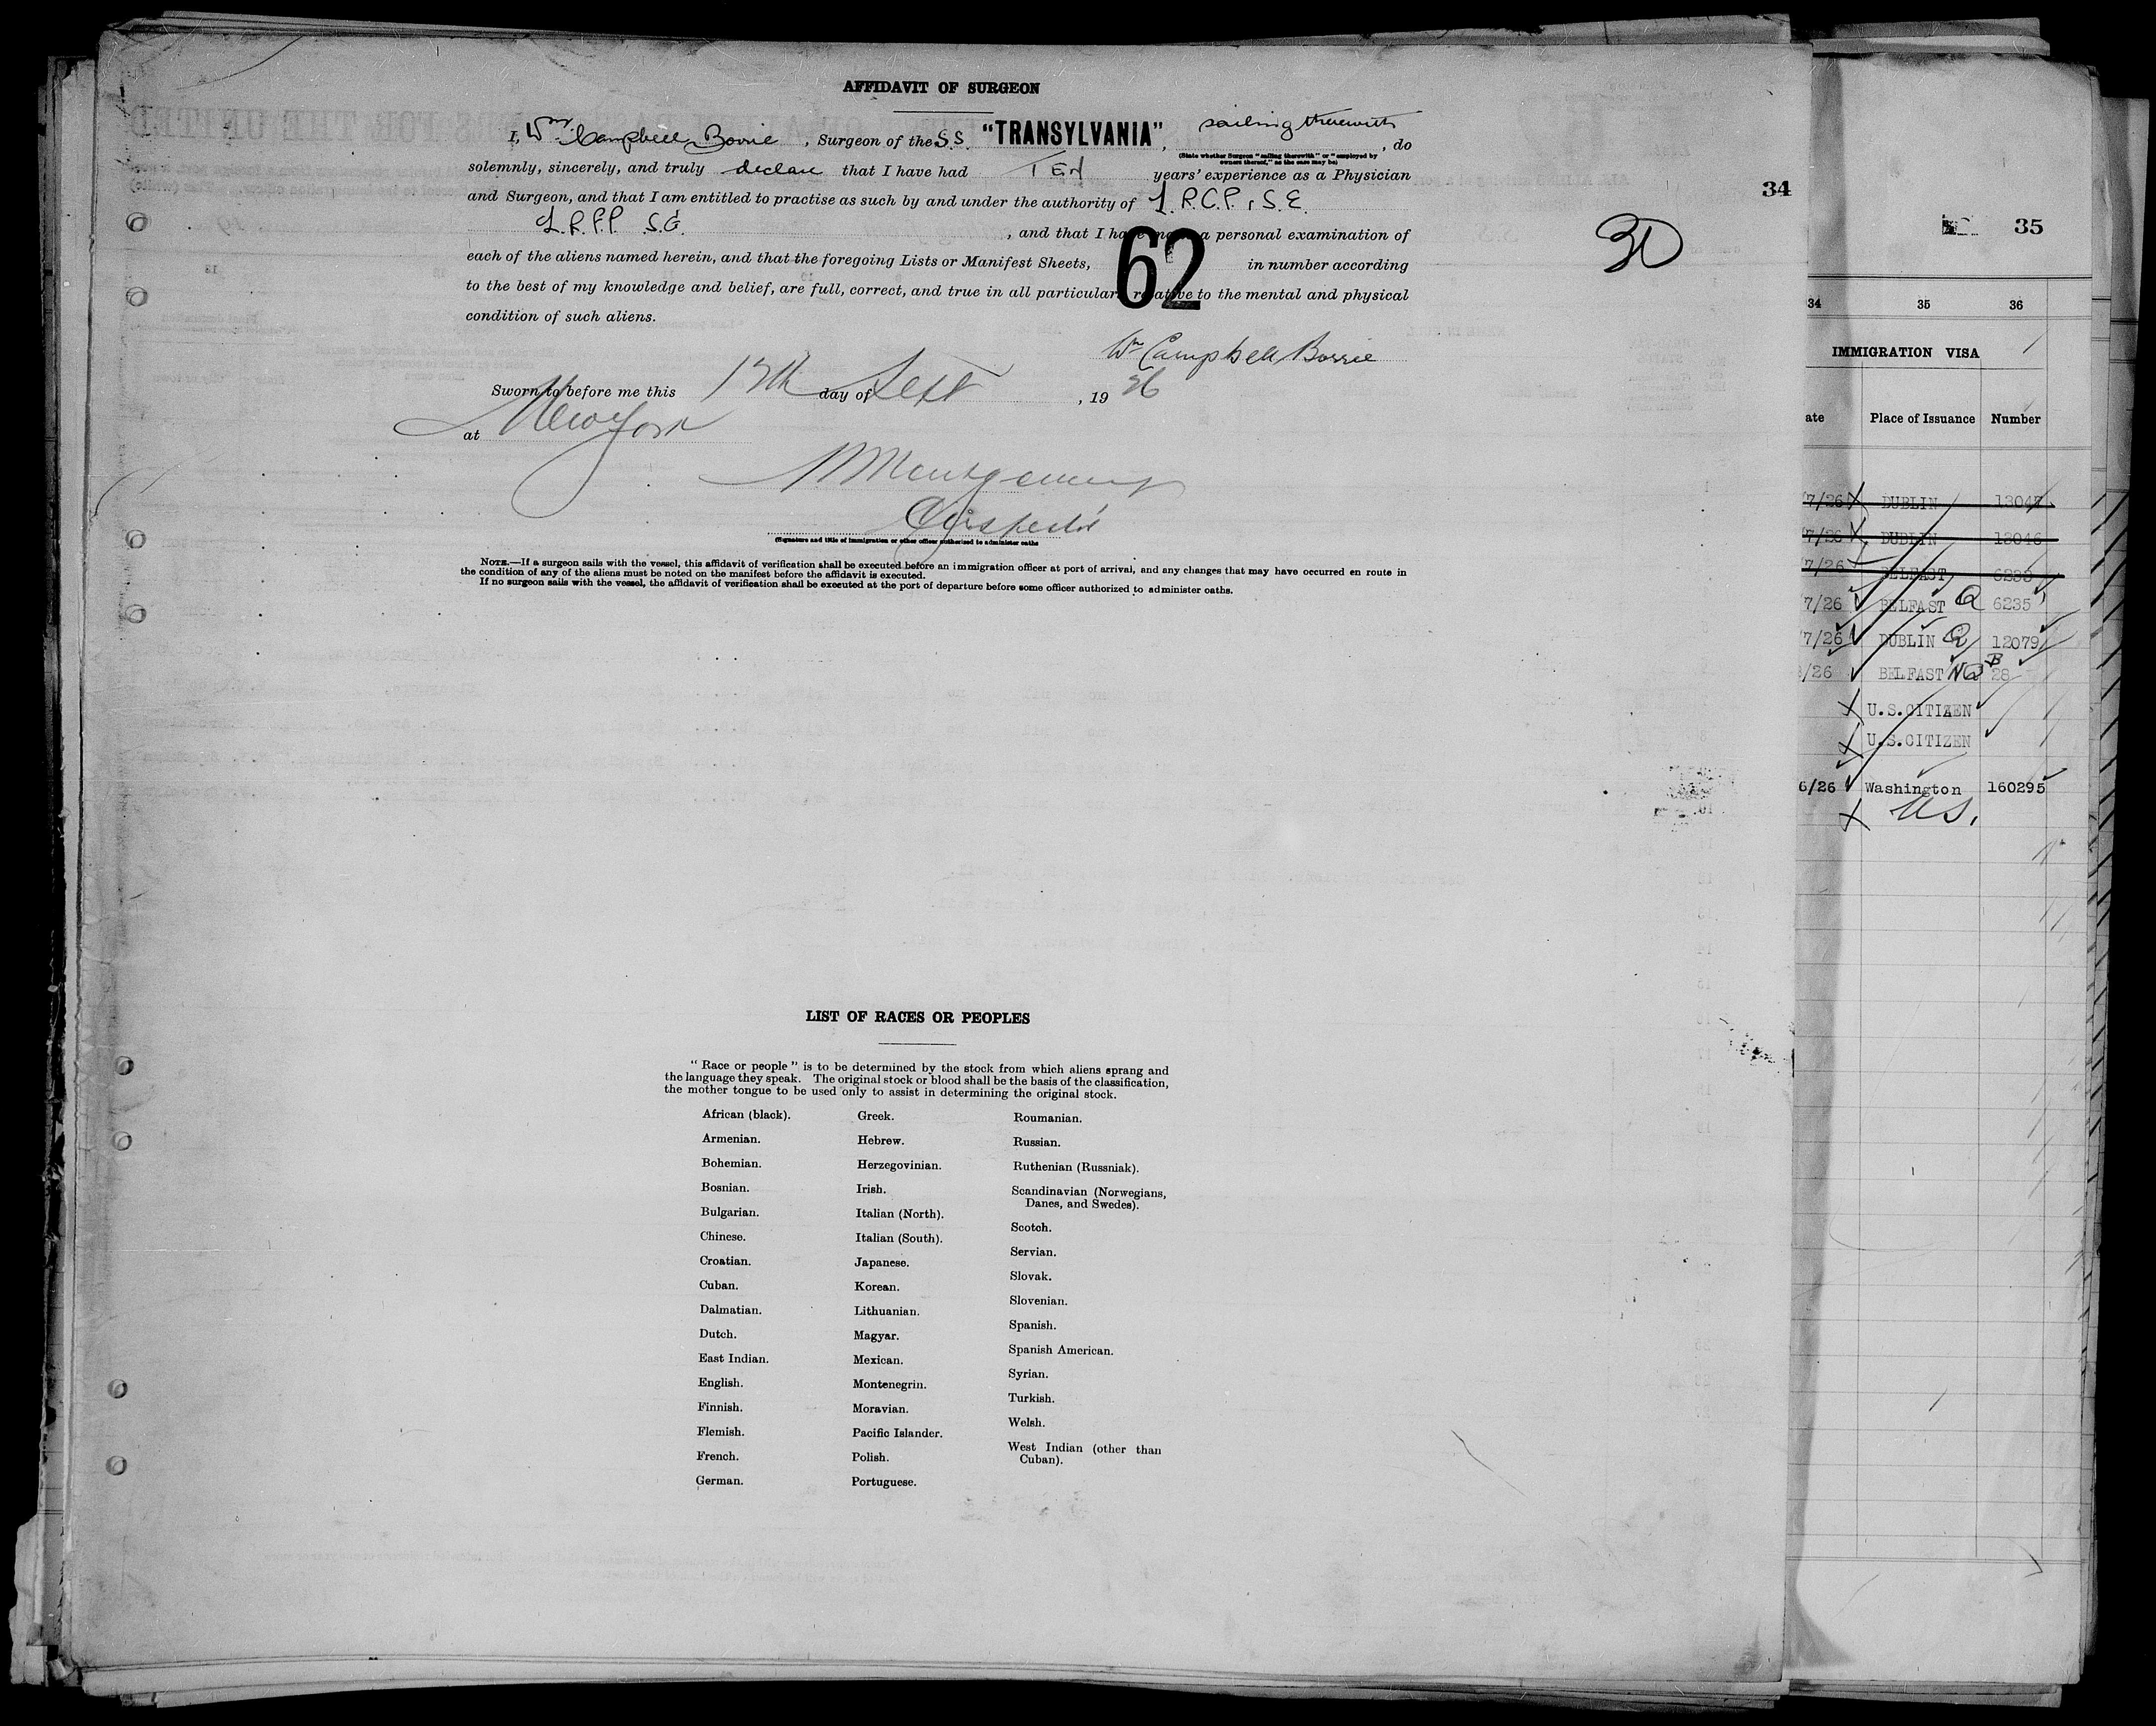 AFFIDAVIT OF SURGEON
I, Wm Campbell Borrie, Surgeon of the S.S. "TRANSYLVANIA", sailing therewith, do
(State whether Surgeon "sailing therewith" or "employed by
owners thereof," as the case may be)
solemnly, sincerely, and truly declare that I have had TEN years' experience as a Physician
and Surgeon, and that I am entitled to practise as such by and under the authority of L.R.C.P., S.E.
, and that I have made a personal examination of
each of the aliens named herein, and that the foregoing Lists or Manifest Sheets, 62 in number according
to the best of my knowledge and belief, are full, correct, and true in all particulars relative to the mental and physical
condition of such aliens.
Wm Campbell Borrie
Sworn to before me this day of Sept, 1926
at New York
Montgomery
Inspector
(Signature and title of immigration or other officer authorized to administer oaths
NOTE.—If a surgeon sails with the vessel, this affidavit of verification shall be executed before an immigration officer at port of arrival, and any changes that may have occurred en route in
the condition of any of the aliens must be noted on the manifest before the affidavit is executed.
If no surgeon sails with the vessel, the affidavit of verification shall be executed at the port of departure before some officer authorized to administer oaths.
34
30
LIST OF RACES OR PEOPLES
"Race or people" is to be determined by the stock from which aliens sprang and
the language they speak. The original stock or blood shall be the basis of the classification,
the mother tongue to be used only to assist in determining the original stock.
African (black).
Armenian.
Bohemian.
Bosnian.
Bulgarian.
Chinese.
Croatian.
Cuban.
Dalmatian.
Dutch.
East Indian.
English.
Finnish.
Flemish.
French.
German.
Greek.
Hebrew.
Herzegovinian.
Irish.
Italian (North).
Italian (South).
Japanese.
Korean.
Lithuanian.
Magyar.
Mexican.
Montenegrin.
Moravian.
Pacific Islander.
Polish.
Portuguese.
Roumanian.
Russian.
Ruthenian (Russniak).
Scandinavian (Norwegians,
Danes, and Swedes).
Scotch.
Servian.
Slovak.
Slovenian.
Spanish.
Spanish American.
Syrian.
Turkish.
Welsh.
West Indian (other than
Cuban).
35
34 35 36
IMMIGRATION VISA
ate Place of Issuance Number
7/26 DUBLIN 13047
7/26 DUBLIN 13046
7/26 BELFAST
7/26 BELFAST Q 6235
7/26 DUBLIN Q 12079
/26 BELFAST NQ B 28
U.S.CITIZEN
U.S.CITIZEN
6/26 Washington 160295
US.